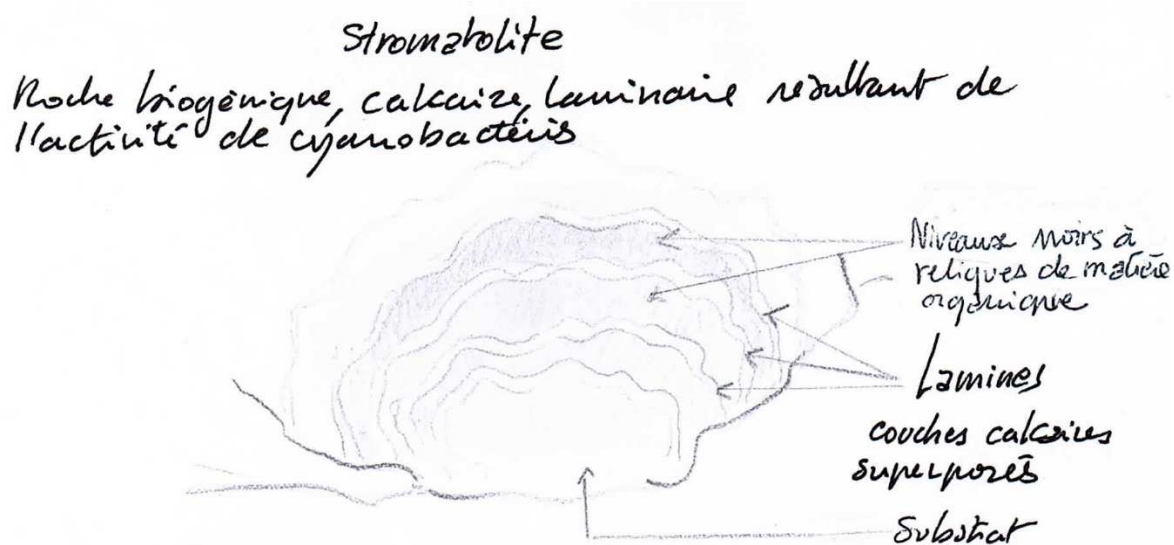 Stromatolite
Roche biogènique, calcaire, laminaire résultant de
l'activité de cyanobactéris
Niveaux noirs à
reliques de matière
organique
Lamines
couches calcaires
superposés
Substrat